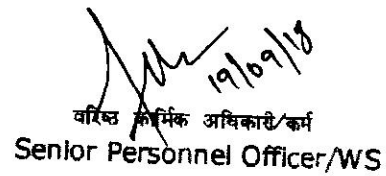 19/09/18
वरिष्ठ कार्मिक अधिकारी/कर्म
Senior Personnel Officer/WS